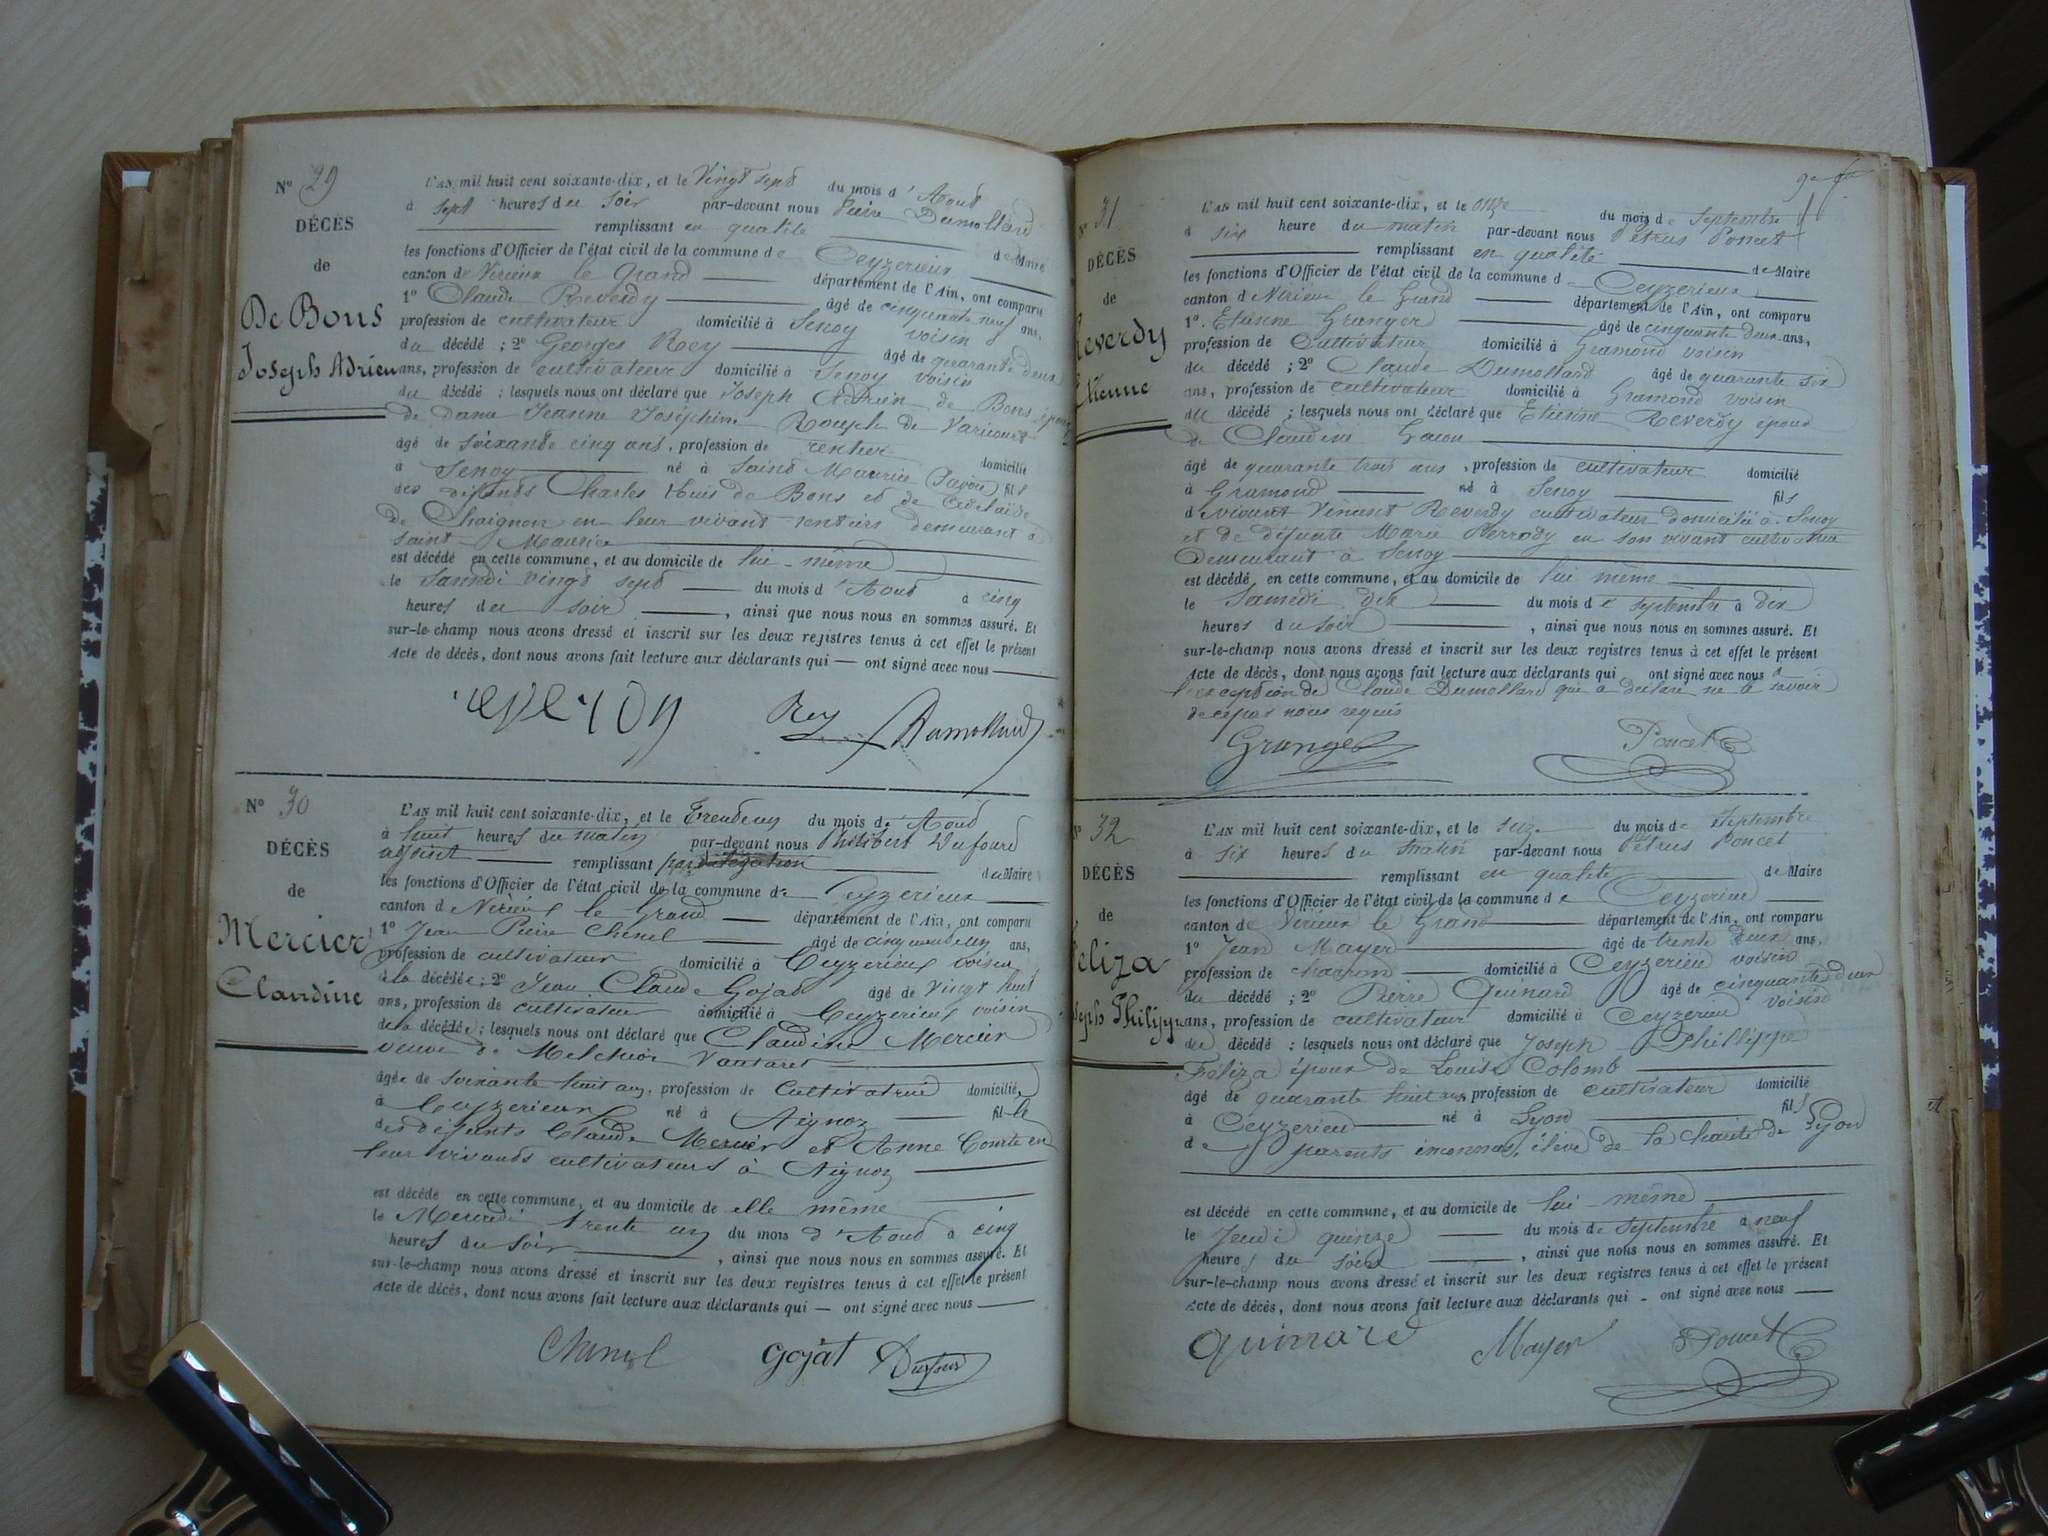 Nº 29
DÉCÈS
de
De Bons
Joseph Adrien
L'AN mil huit cent soixante-dix, et le Vingt sept du mois d'Aout
à sept heures du soir par-devant nous Pierre Dumollard
remplissant en qualité de Maire
les fonctions d'Officier de l'état civil de la commune de Ceyzerieux
canton de Virieux le Grand département de l'Ain, ont comparu
1º Claude Reverdy âgé de cinquante neuf ans,
profession de cultivateur domicilié à Senoy voisin
du décédé ; 2º Georges Rey âgé de quarante deux
ans, profession de cultivateur domicilié à Senoy voisin
du décédé ; lesquels nous ont déclaré que Joseph Adrien de Bons époux
de dame Jeanne Joséphine Rouph de Varicourt
âgé de soixante cinq ans, profession de rentier domicilié
à Senoy né à Saint Maurice (Savoie) fils
des défunts Charles Louis de Bons et de Adelaïde
de Chaignon en leur vivant rentiers demeurant à
Saint Maurice
est décédé en cette commune, et au domicile de lui-même
le Samedi vingt sept du mois d'Aout à cinq
heures du soir , ainsi que nous nous en sommes assuré. Et
sur-le-champ nous avons dressé et inscrit sur les deux registres tenus à cet effet le présent
Acte de décès, dont nous avons fait lecture aux déclarants qui — ont signé avec nous
reverdy Rey Dumollard
Nº 30
DÉCÈS
de
Mercier
Claudine
L'AN mil huit cent soixante-dix, et le Trente un du mois d'Aout
à huit heures du matin par-devant nous Philibert Dufourd
adjoint remplissant par délégation du Maire
les fonctions d'Officier de l'état civil de la commune de Ceyzerieux
canton d Virieux le Grand département de l'Ain, ont comparu
1º Jean Pierre Chenel âgé de cinquante un ans,
profession de cultivateur domicilié à Ceyzerieux voisin
de la décédée ; 2º Jean Claude Gojat âgé de vingt huit
ans, profession de cultivateur domicilié à Ceyzerieux voisin
de la décédée ; lesquels nous ont déclaré que Claudine Mercier
veuve de Melchior Vautaret
âgée de soixante huit ans, profession de cultivatrice domiciliée
à Ceyzerieux né à Aignoz fille
des défunts Claude Mercier et Anne Courte en
leur vivants cultivateurs à Aignoz
est décédé en cette commune, et au domicile de elle même
le Mercredi trente un du mois d'Aout à cinq
heures du soir , ainsi que nous nous en sommes assuré. Et
sur-le-champ nous avons dressé et inscrit sur les deux registres tenus à cet effet le présent
Acte de décès, dont nous avons fait lecture aux déclarants qui — ont signé avec nous
Chenel gojat Dufour
Nº 31
DÉCÈS
de
Reverdy
Etienne
L'AN mil huit cent soixante-dix, et le onze du mois de Septembre
à six heure du matin par-devant nous Pétrus Poncet
remplissant en qualité de Maire
les fonctions d'Officier de l'état civil de la commune d Ceyzerieux
canton d Virieu le Grand département de l'Ain, ont comparu
1º. Etienne Granger âgé de cinquante deux ans,
profession de Cultivateur domicilié à Gramond voisin
du décédé ; 2º Claude Dumollard âgé de quarante six
ans, profession de cultivateur domicilié à Gramond voisin
du décédé ; lesquels nous ont déclaré que Etienne Reverdy époux
de Claudine Gacon
âgé de quarante trois ans, profession de cultivateur domicilié
à Gramond né à Senoy fils
d vivant Vincent Reverdy cultivateur domicilié à Senoy
et de défunte Marie Perrody en son vivant cultivatrice
Demeurant à Senoy
est décédé en cette commune, et au domicile de lui même
le Samedi dix du mois de septembre à dix
heures du soir , ainsi que nous nous en sommes assuré. Et
sur-le-champ nous avons dressé et inscrit sur les deux registres tenus à cet effet le présent
Acte de décès, dont nous avons fait lecture aux déclarants qui ont signé avec nous à
l'exception de Claude Dumollard qui a déclaré ne le savoir
de ce par nous requis
Granger Poncet
Nº 32
DÉCÈS
de
Féliza
Joseph Philippe
L'AN mil huit cent soixante-dix, et le seize du mois de Septembre
à six heures du matin par-devant nous Pétrus Poncet
remplissant en qualité de Maire
les fonctions d'Officier de l'état civil de la commune de Ceyzerieu
canton de Virieux le Grand département de l'Ain, ont comparu
1º Jean Mayer âgé de trente deux ans,
profession de charron domicilié à Ceyzerieu voisin
du décédé ; 2º Pierre Quinard âgé de cinquante deux
ans, profession de cultivateur domicilié à Ceyzerieu voisin
du décédé ; lesquels nous ont déclaré que Joseph Philippe
Féliza époux de Louise Colomb
âgé de quarante huit ans, profession de cultivateur domicilié
à Ceyzerieu né à Lyon fils
de parents inconnus, élève de la charité de Lyon
est décédé en cette commune, et au domicile de lui-même
le Jeudi quinze du mois de septembre à neuf
heures du soir , ainsi que nous nous en sommes assuré. Et
sur-le-champ nous avons dressé et inscrit sur les deux registres tenus à cet effet le présent
Acte de décès, dont nous avons fait lecture aux déclarants qui - ont signé avec nous
quinard Mayer Poncet